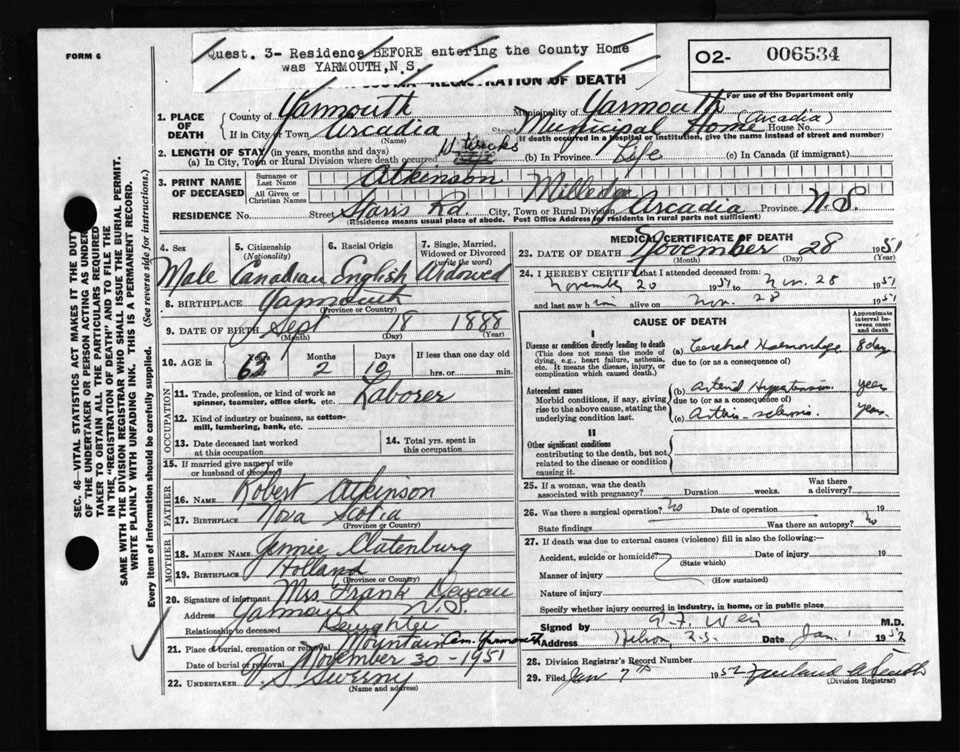 FORM 6
Quest. 3- Residence BEFORE entering the County Home
was YARMOUTH, N.S.
02- 006534
REGISTRATION OF DEATH
For use of the Department only
1. PLACE OF DEATH
County of Yarmouth Municipality of Yarmouth
(Arcadia)
If in City or Town Arcadia Street Municipal Home House No.
(Name) If death occurred in a hospital or institution, give the name instead of street and number)
2. LENGTH OF STAY (in years, months and days)
(a) In City, Town or Rural Division where death occurred 11 weeks (b) In Province Life (c) In Canada (if immigrant)
3. PRINT NAME OF DECEASED
Surname or Last Name Atkinson
All Given or Christian Names Milledge
RESIDENCE No. Street Starrs Rd. City, Town or Rural Division Arcadia Province N.S.
(Residence means usual place of abode. Post Office Address for residents in rural parts not sufficient)
4. Sex Male
5. Citizenship (Nationality) Canadian
6. Racial Origin English
7. Single, Married, Widowed or Divorced (write the word) Widowed
8. BIRTHPLACE Yarmouth
(Province or Country)
9. DATE OF BIRTH Sept 18 1888
(Month) (Day) (Year)
10. AGE is Years Months 2 Days 10 If less than one day old
hrs. or min.
OCCUPATION
11. Trade, profession, or kind of work as spinner, teamster, office clerk, etc. Laborer
12. Kind of industry or business, as cotton-mill, lumbering, bank, etc.
13. Date deceased last worked at this occupation
14. Total yrs. spent in this occupation
15. If married give name of wife or husband of deceased
FATHER
16. NAME Robert Atkinson
17. BIRTHPLACE Nova Scotia
(Province or Country)
MOTHER
18. MAIDEN NAME Jennie Clatenburg
19. BIRTHPLACE Holland
(Province or Country)
20. Signature of informant Mrs. Frank
Address Yarmouth N.S.
Relationship to deceased Daughter
21. Place of burial, cremation or removal Mountain Cem. Yarmouth
Date of burial or removal November 30 - 1951
22. UNDERTAKER V. S. Sweeny
(Name and address)
MEDICAL CERTIFICATE OF DEATH
23. DATE OF DEATH November 28 1951
(Month) (Day) (Year)
24. I HEREBY CERTIFY that I attended deceased from:
November 20 1951 to Nov. 28 1951
and last saw him alive on Nov. 28 1951
CAUSE OF DEATH
Approximate interval between onset and death
I
Disease or condition directly leading to death
(This does not mean the mode of dying, e.g., heart failure, asthenia, etc. It means the disease, injury, or complication which caused death.)
(a) Cerebral Haemorrhage 8 day
due to (or as a consequence of)
Antecedent causes
Morbid conditions, if any, giving rise to the above cause, stating the underlying condition last.
(b) Arterial Hypertension year
due to (or as a consequence of)
(c) Arterio-sclerosis year
II
Other significant conditions
contributing to the death, but not related to the disease or condition causing it.
25. If a woman, was the death associated with pregnancy? Duration weeks. Was there a delivery?
26. Was there a surgical operation? no Date of operation 19
State findings Was there an autopsy? no
27. If death was due to external causes (violence) fill in also the following:
Accident, suicide or homicide? Date of injury 19
(State which)
Manner of injury
(How sustained)
Nature of injury
Specify whether injury occurred in industry, in home, or in public place
Signed by M.D.
Address Hebron, N.S. Date Jan. 1 1952
28. Division Registrar's Record Number
29. Filed Jan 7th 1952
(Division Registrar)
SEC. 46—VITAL STATISTICS ACT MAKES IT THE DUTY
OF THE UNDERTAKER OR PERSON ACTING AS UNDER-
TAKER TO OBTAIN ALL THE PARTICULARS REQUIRED
IN THE "REGISTRATION OF DEATH" AND TO FILE THE
SAME WITH THE DIVISION REGISTRAR WHO SHALL ISSUE THE BURIAL PERMIT.
WRITE PLAINLY WITH UNFADING INK. THIS IS A PERMANENT RECORD.
Every item of information should be carefully supplied. (See reverse side for instructions.)